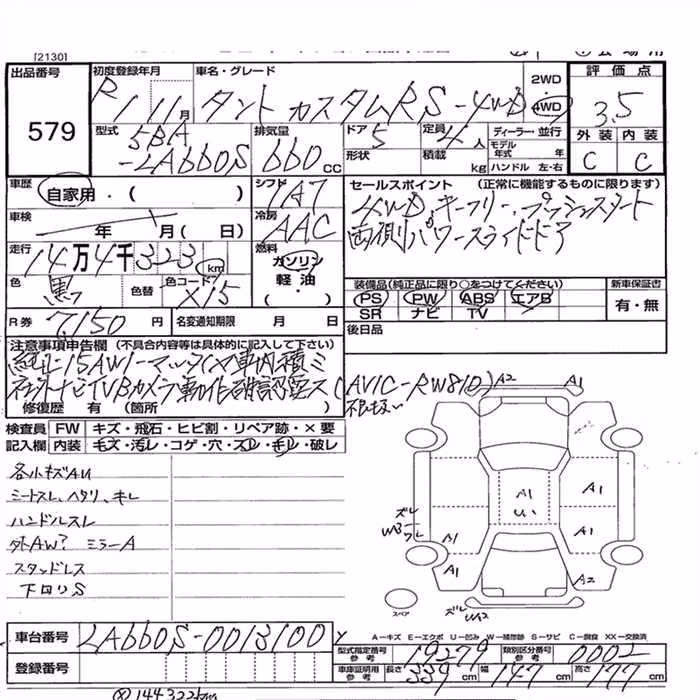 [2130]
出品番号 初度登録年月 車名・グレード 2WD 評価点
579 R1 11月 タント カスタムRS-4WD 4WD 3.5
型式 5BA-LA660S 排気量 660cc ドア 5 定員 4人 ディーラー・並行 外装 内装
形状 積載 kg モデル年式 年 ハンドル 左・右 C C
車歴 自家用・( ) シフト IA7 セールスポイント (正常に機能するものに限ります)
車検 年 月(日) 冷房 AAC 4WD キーフリー、プッシュスタート
両側パワースライドドア
走行 14万4千323km 燃料 ガソリン
軽油
・( )
色 黒 色替 色コード X15
装備品(純正品に限り○をつけてください) 新車保証書
PS PW ABS エアB 有・無
SR ナビ TV
R券 7,150円 名変通知期限 月 日 後日品
注意事項申告欄 (不具合内容等は具体的に記入して下さい)
純正15AW
ナビTVBカメラ動作確認 (AVIC-RW810)
修復歴 有 (箇所 )
検査員 FW キズ・飛石・ヒビ割・リペア跡・×要
記入欄 内装 モズ・汚レ・コゲ・穴・スレ・キレ・破レ
各小キズAU
シートスレ、ヘタリ、キレ
ハンドルスレ
外AW? ミラーA
スタッドレス
下回りS
A2 A1
A1 A1
U1
A1
ズレ
A1 A1
A1 A2
スペア ズレ
A-キズ E-エクボ U-凹み W-補修跡 S-サビ C-腐食 XX-交換済
車台番号 LA660S-0013100
型式指定番号 参考 19279 類別区分番号 参考 0002
登録番号 車庫証明用 参考 長さ 339cm 幅 147cm 高さ 177cm
144322km